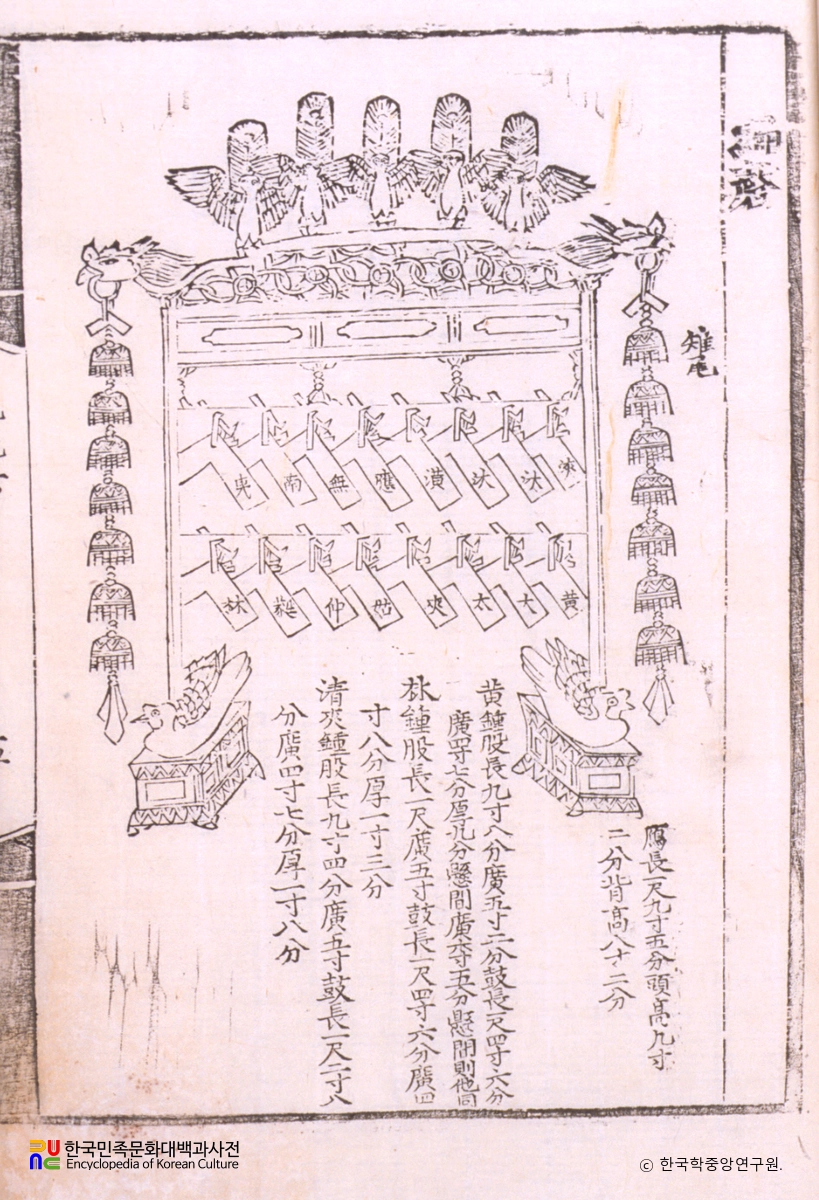 編磬
雉尾
夷 南 無 應 潢 汏 汰 浹
林 蕤 仲 姑 夾 太 大 黃
鳬長一尺九寸五分頭高九寸
二分背高八寸二分
黃鍾股長九寸八分廣五寸二分鼓長一尺四寸六分
廣四寸七分厚九分懸間廣六寸五分懸間則他同
林鍾股長一尺廣五寸鼓長一尺四寸六分廣四
寸八分厚一寸三分
清夾鍾股長九寸四分廣五寸鼓長一尺二寸八
分廣四寸七分厚一寸八分
한국민족문화대백과사전
Encyclopedia of Korean Culture
© 한국학중앙연구원.